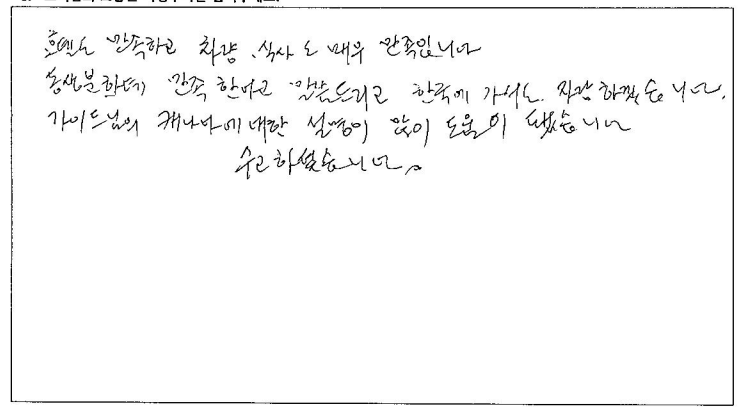 호텔도 만족하고 차량, 식사도 매우 만족입니다
동생분한테 만족한다고 말씀드리고 한국에 가서도 자랑하겠습니다.
가이드님의 캐나다에 대한 설명이 많이 도움이 됐습니다
수고하셨습니다.